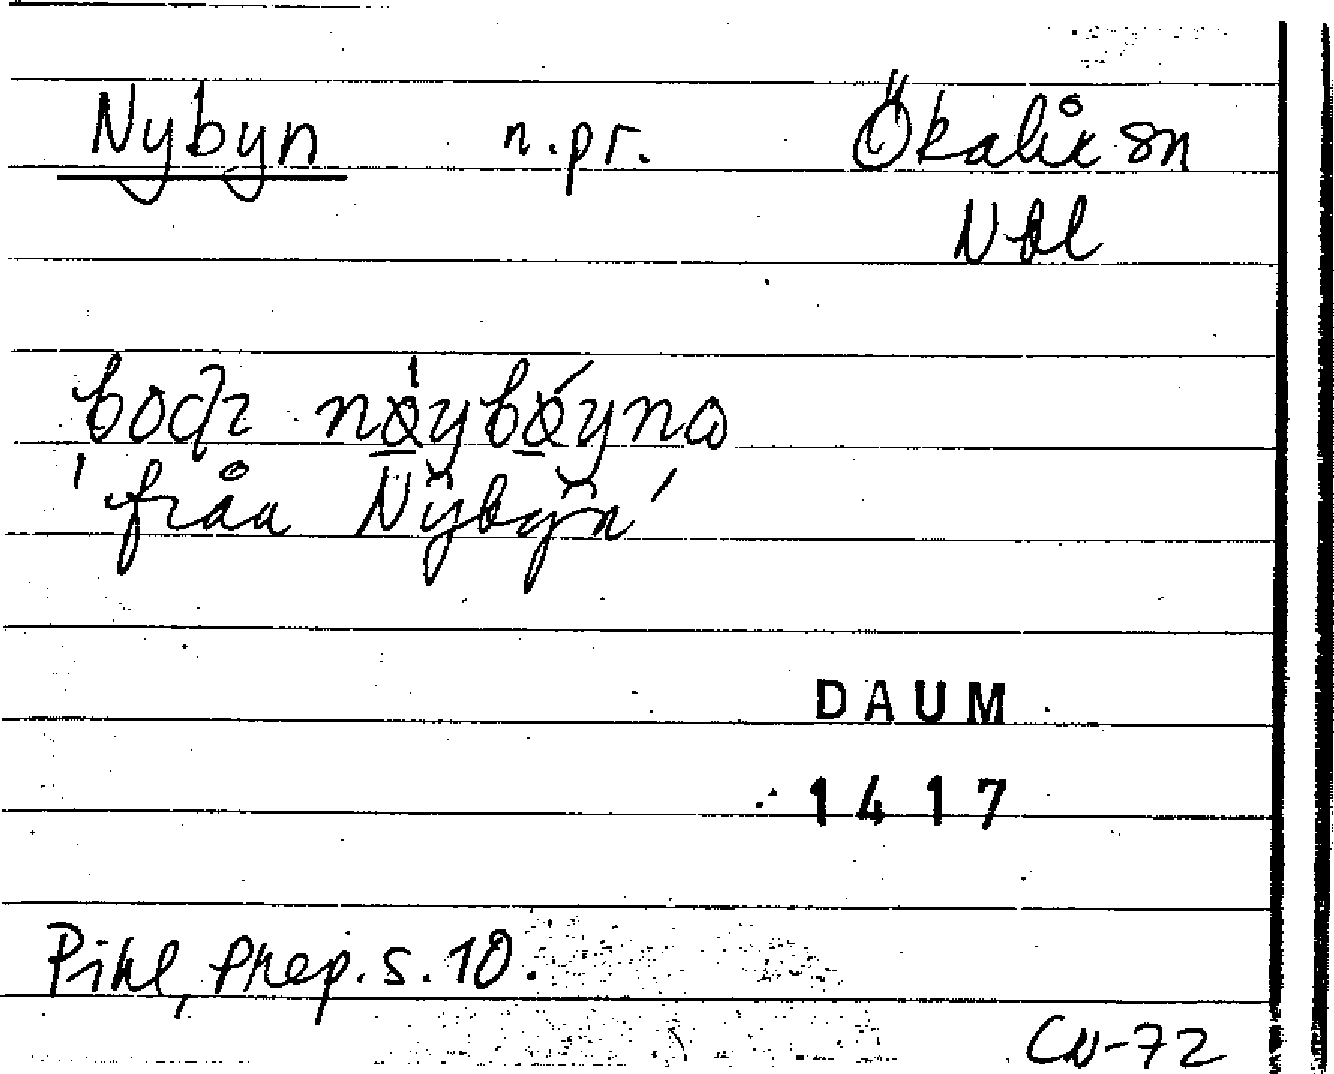 Nybyn n.pr. Ökalix sn
Nbl
'från Nybyn'
DAUM
1417
Pihl, Prep. s. 10.
CN-72